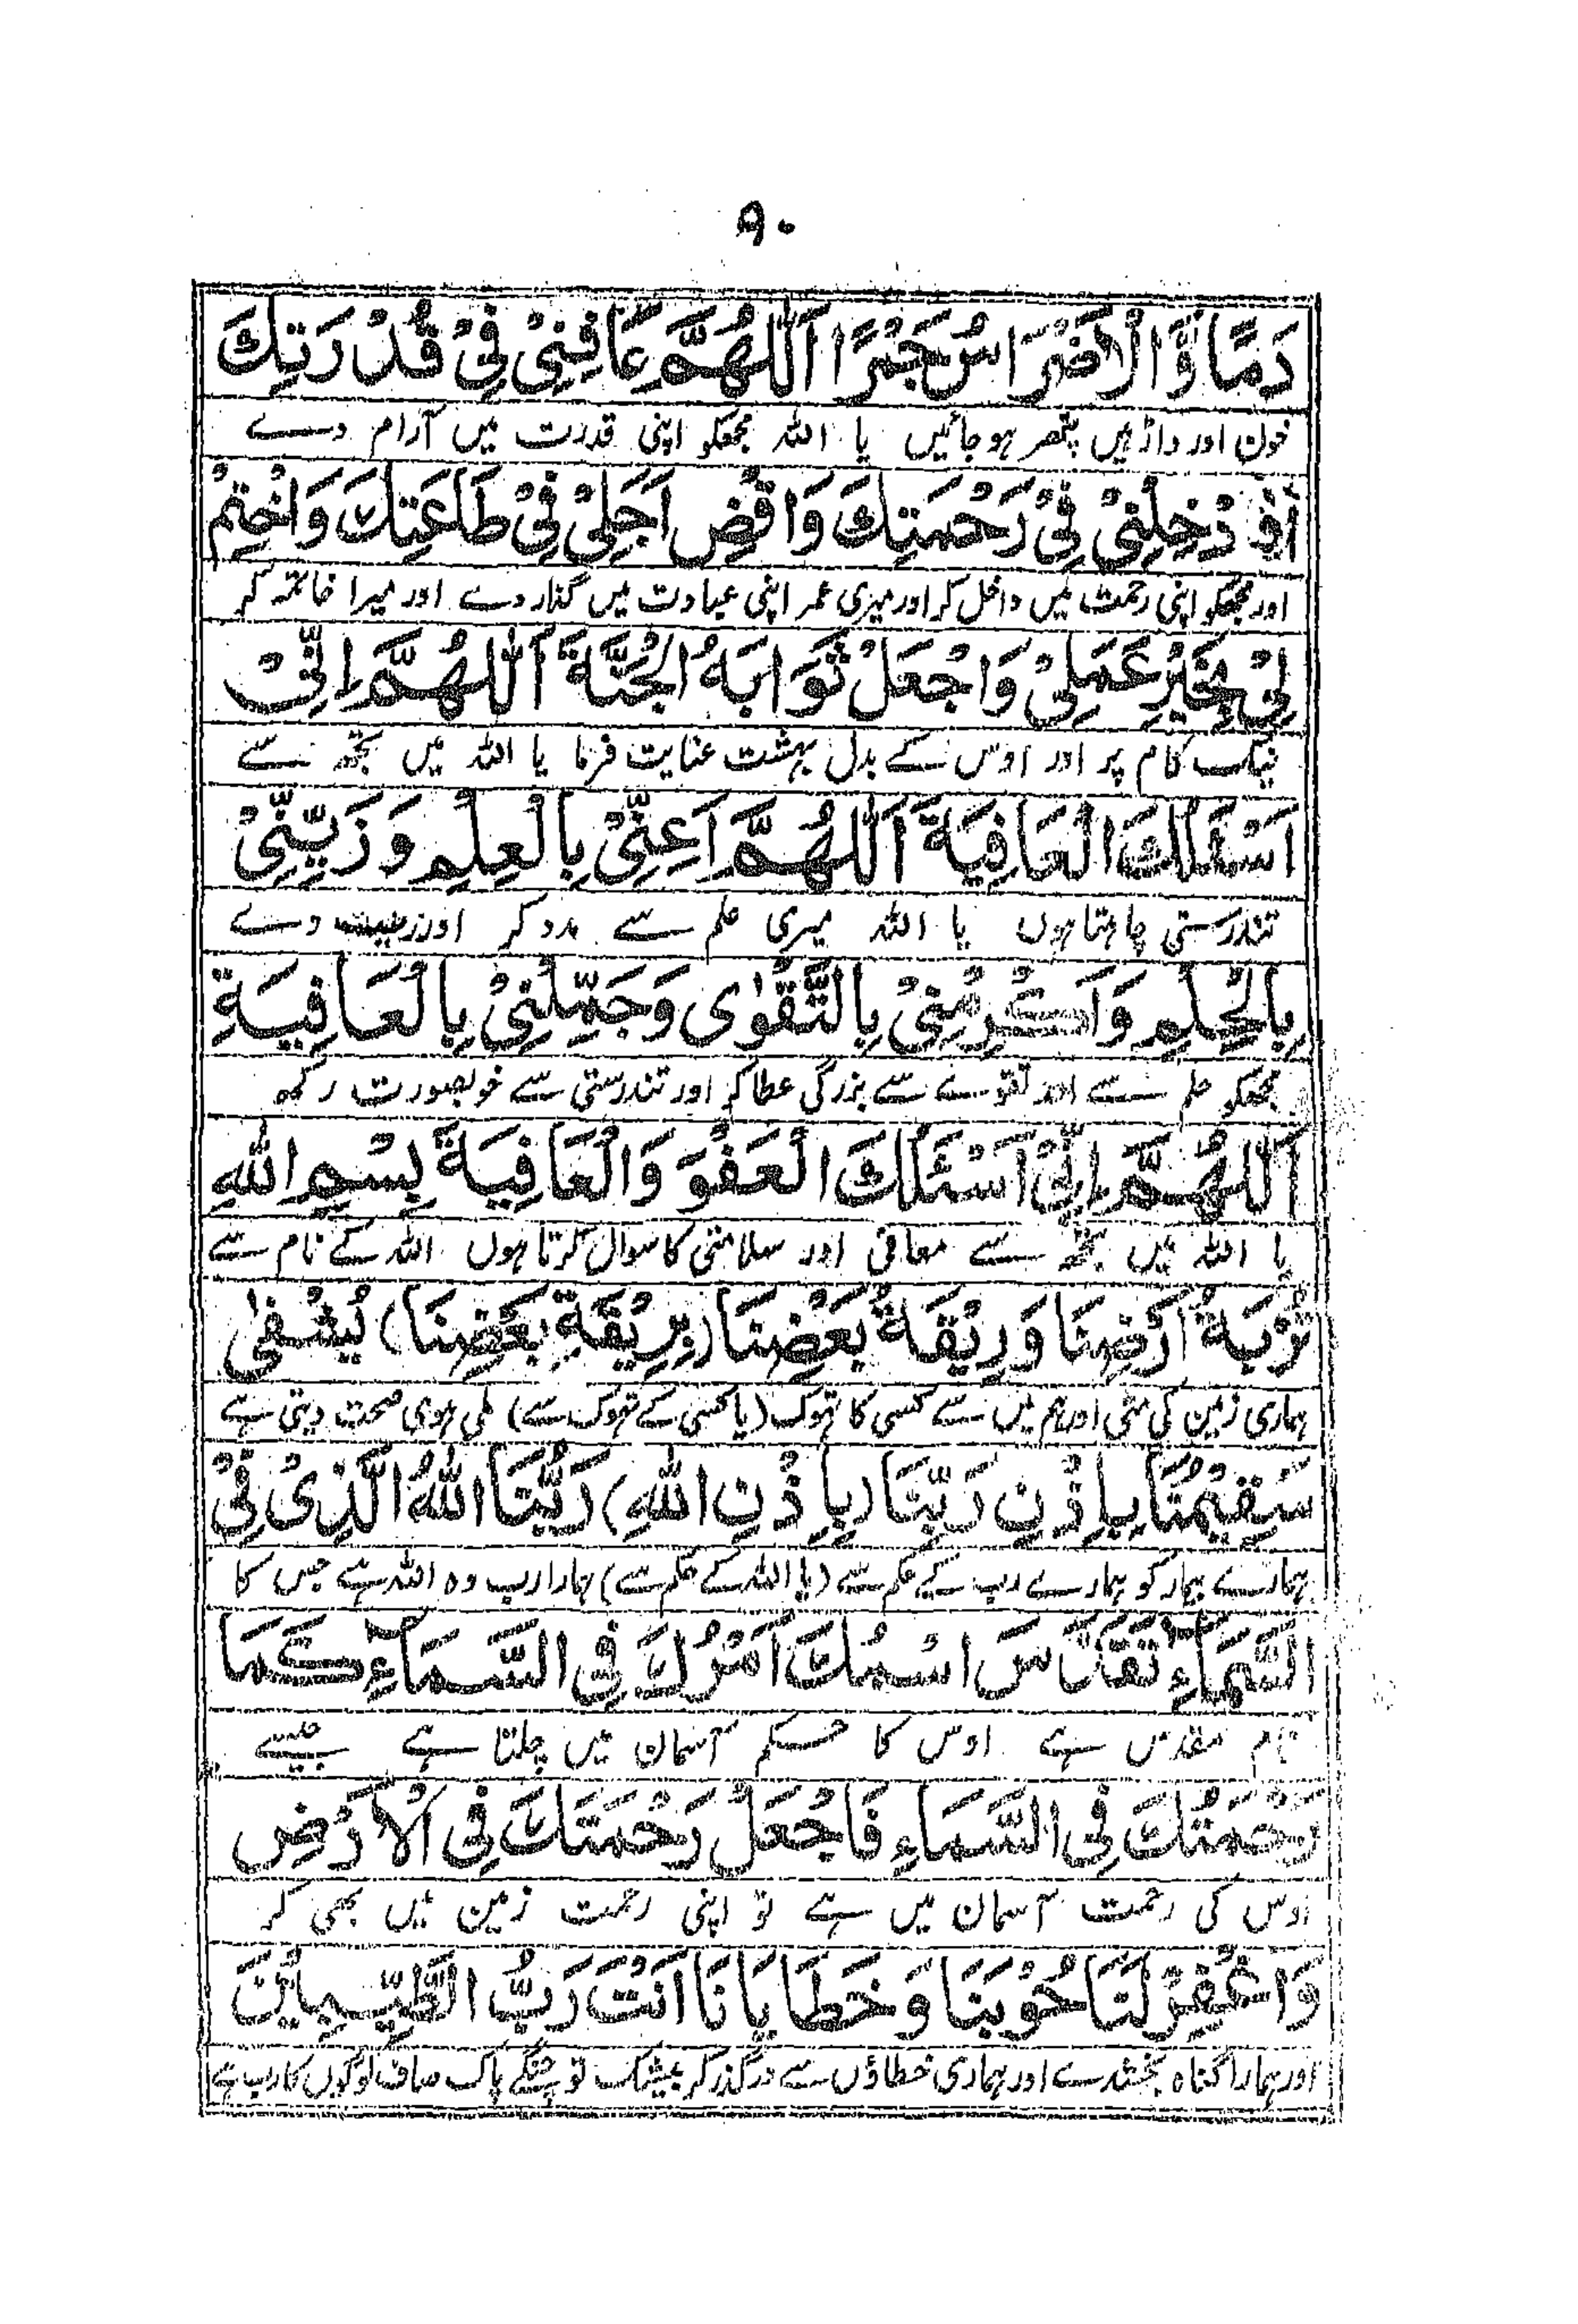 ٩٠
دَمًا وَّالْاَضْرَاسُ حَجَرًا اَللّٰهُمَّ عَافِنِيْ فِيْ قُدْرَتِكَ
خون اور داڑہیں پتھر ہوجائیں یا اللہ مجھکو اپنی قدرت میں آرام دے
اَوْ دْخِلْنِيْ فِيْ رَحْمَتِكَ وَاقْضِ اَجَلِيْ فِيْ طَاعَتِكَ وَاخْتِمْ
اور مجھکو اپنی رحمت میں داخل کر اور میری عمر اپنی عبادت میں گذار دے اور میرا خاتمہ کر
لِيْ بِخَيْرِ عَمَلِيْ وَاجْعَلْ ثَوَابَهُ الْجَنَّةَ اَللّٰهُمَّ اِنِّيْ
نیک کام پر اور اوس کے بدل بہشت عنایت فرما یا اللہ میں تجھ سے
اَسْئَلُكَ الْعَافِيَةَ اَللّٰهُمَّ اَعِنِّيْ بِالْعِلْمِ وَزَيِّنِّيْ
تندرستی چاہتا ہوں یا اللہ میری علم سے مدد کر اور زینت دے
بِالْحِلْمِ وَاَكْرِمْنِيْ بِالتَّقْوٰى وَجَمِّلْنِيْ بِالْعَافِيَةِ
مجھکو حلم سے اور تقوے سے بزرگی عطا کر اور تندرستی سے خوبصورت رکھ
اَللّٰهُمَّ اِنِّيْ اَسْئَلُكَ الْعَفْوَ وَالْعَافِيَةَ بِسْمِ اللهِ
یا اللہ میں تجھ سے معافی اور سلامتی کا سوال کرتا ہوں اللہ کے نام سے
تُرْبَةُ اَرْضِنَا وَرِيْقَةُ بَعْضِنَا (بِرِيْقَةِ بَعْضِنَا) يُشْفٰى
ہماری زمین کی مٹی اور ہم میں سے کسی کا تہوک (یا کسی کے تہوک سے) ملی ہوی صحت دیتی ہے
سَقِيْمُنَا بِاِذْنِ رَبِّنَا (بِاِذْنِ اللهِ) رَبُّنَا اللهُ الَّذِيْ فِيْ
ہمارے بیمار کو ہمارے رب کے حکم سے (یا اللہ کے حکم سے) ہمارا رب وہ اللہ ہے جس کا
السَّمَاءِ تَقَدَّسَ اسْمُكَ اَمْرُكَ فِي السَّمَاءِ كَمَا
نام مقدس ہے اوس کا حکم آسمان میں چلتا ہے جیسے
رَحْمَتُكَ فِي السَّمَاءِ فَاجْعَلْ رَحْمَتَكَ فِي الْاَرْضِ
اوس کی رحمت آسمان میں ہے تو اپنی رحمت زمین میں بھی کر
وَاغْفِرْ لَنَا حُوْبَنَا وَخَطَايَانَا اَنْتَ رَبُّ الطَّيِّبِيْنَ
اور ہمارا گناہ بخشدے اور ہماری خطاؤں سے درگذر کر بیشک تو چنگے پاک صاف لوگوں کا رب ہے